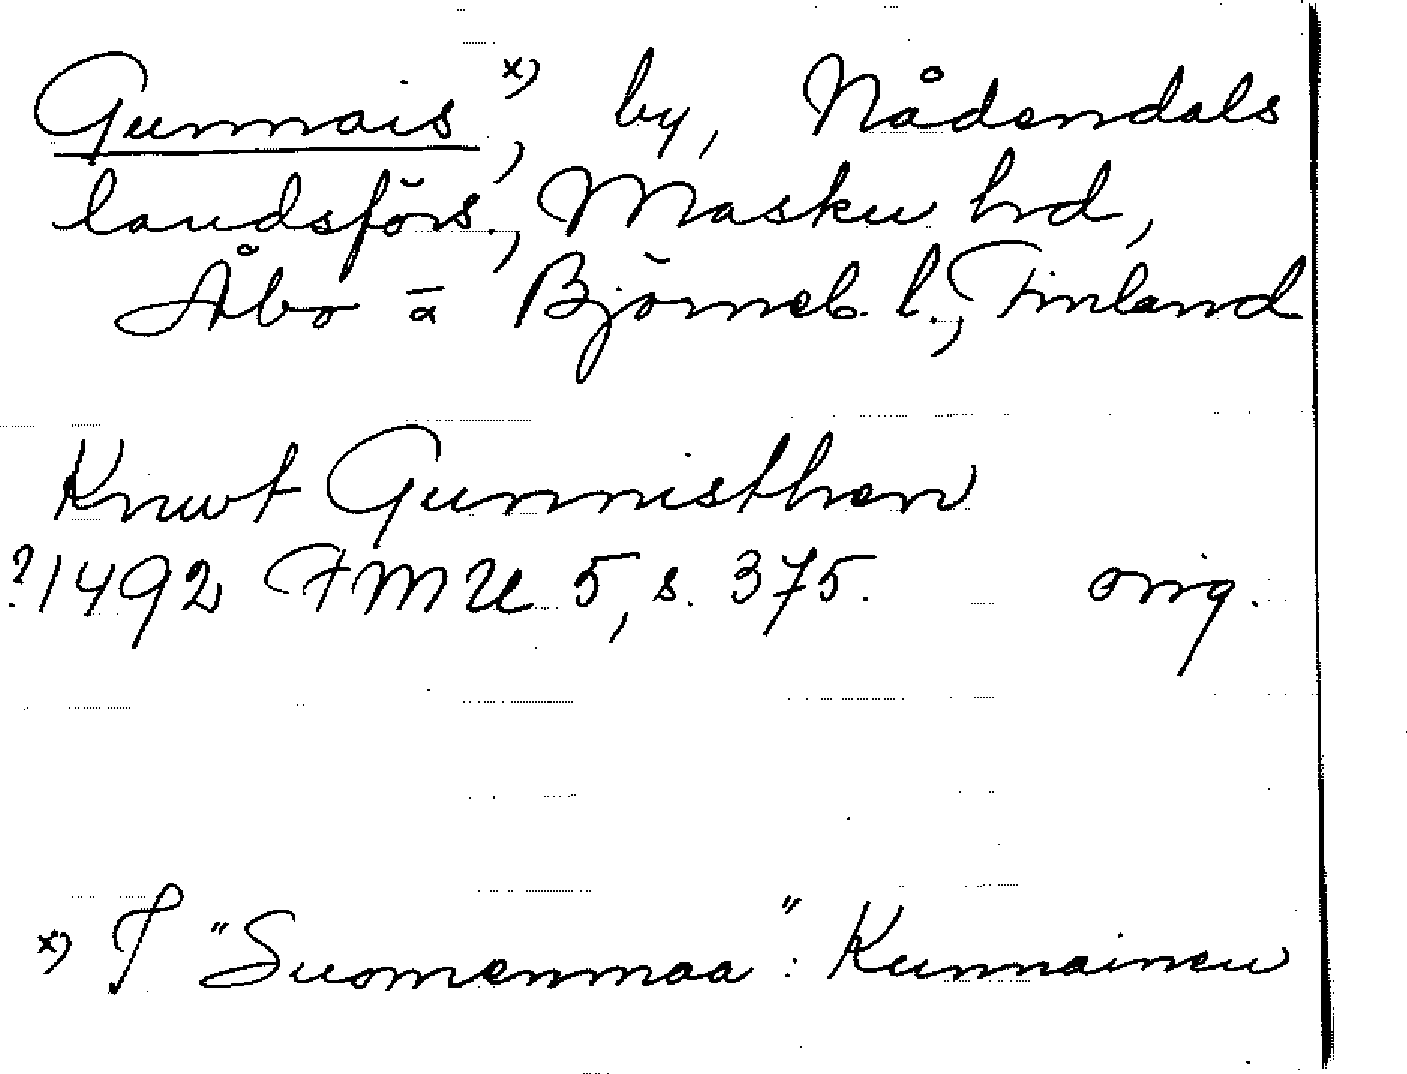 Gunnais x), by, Nådendals
landsförs., Masku hd,
Åbo o Björneb. l., Finland
Knwt Gunnisthen
?1492 FMU 5, s. 375. orig.
x) I "Suomenmaa": Kunnainen